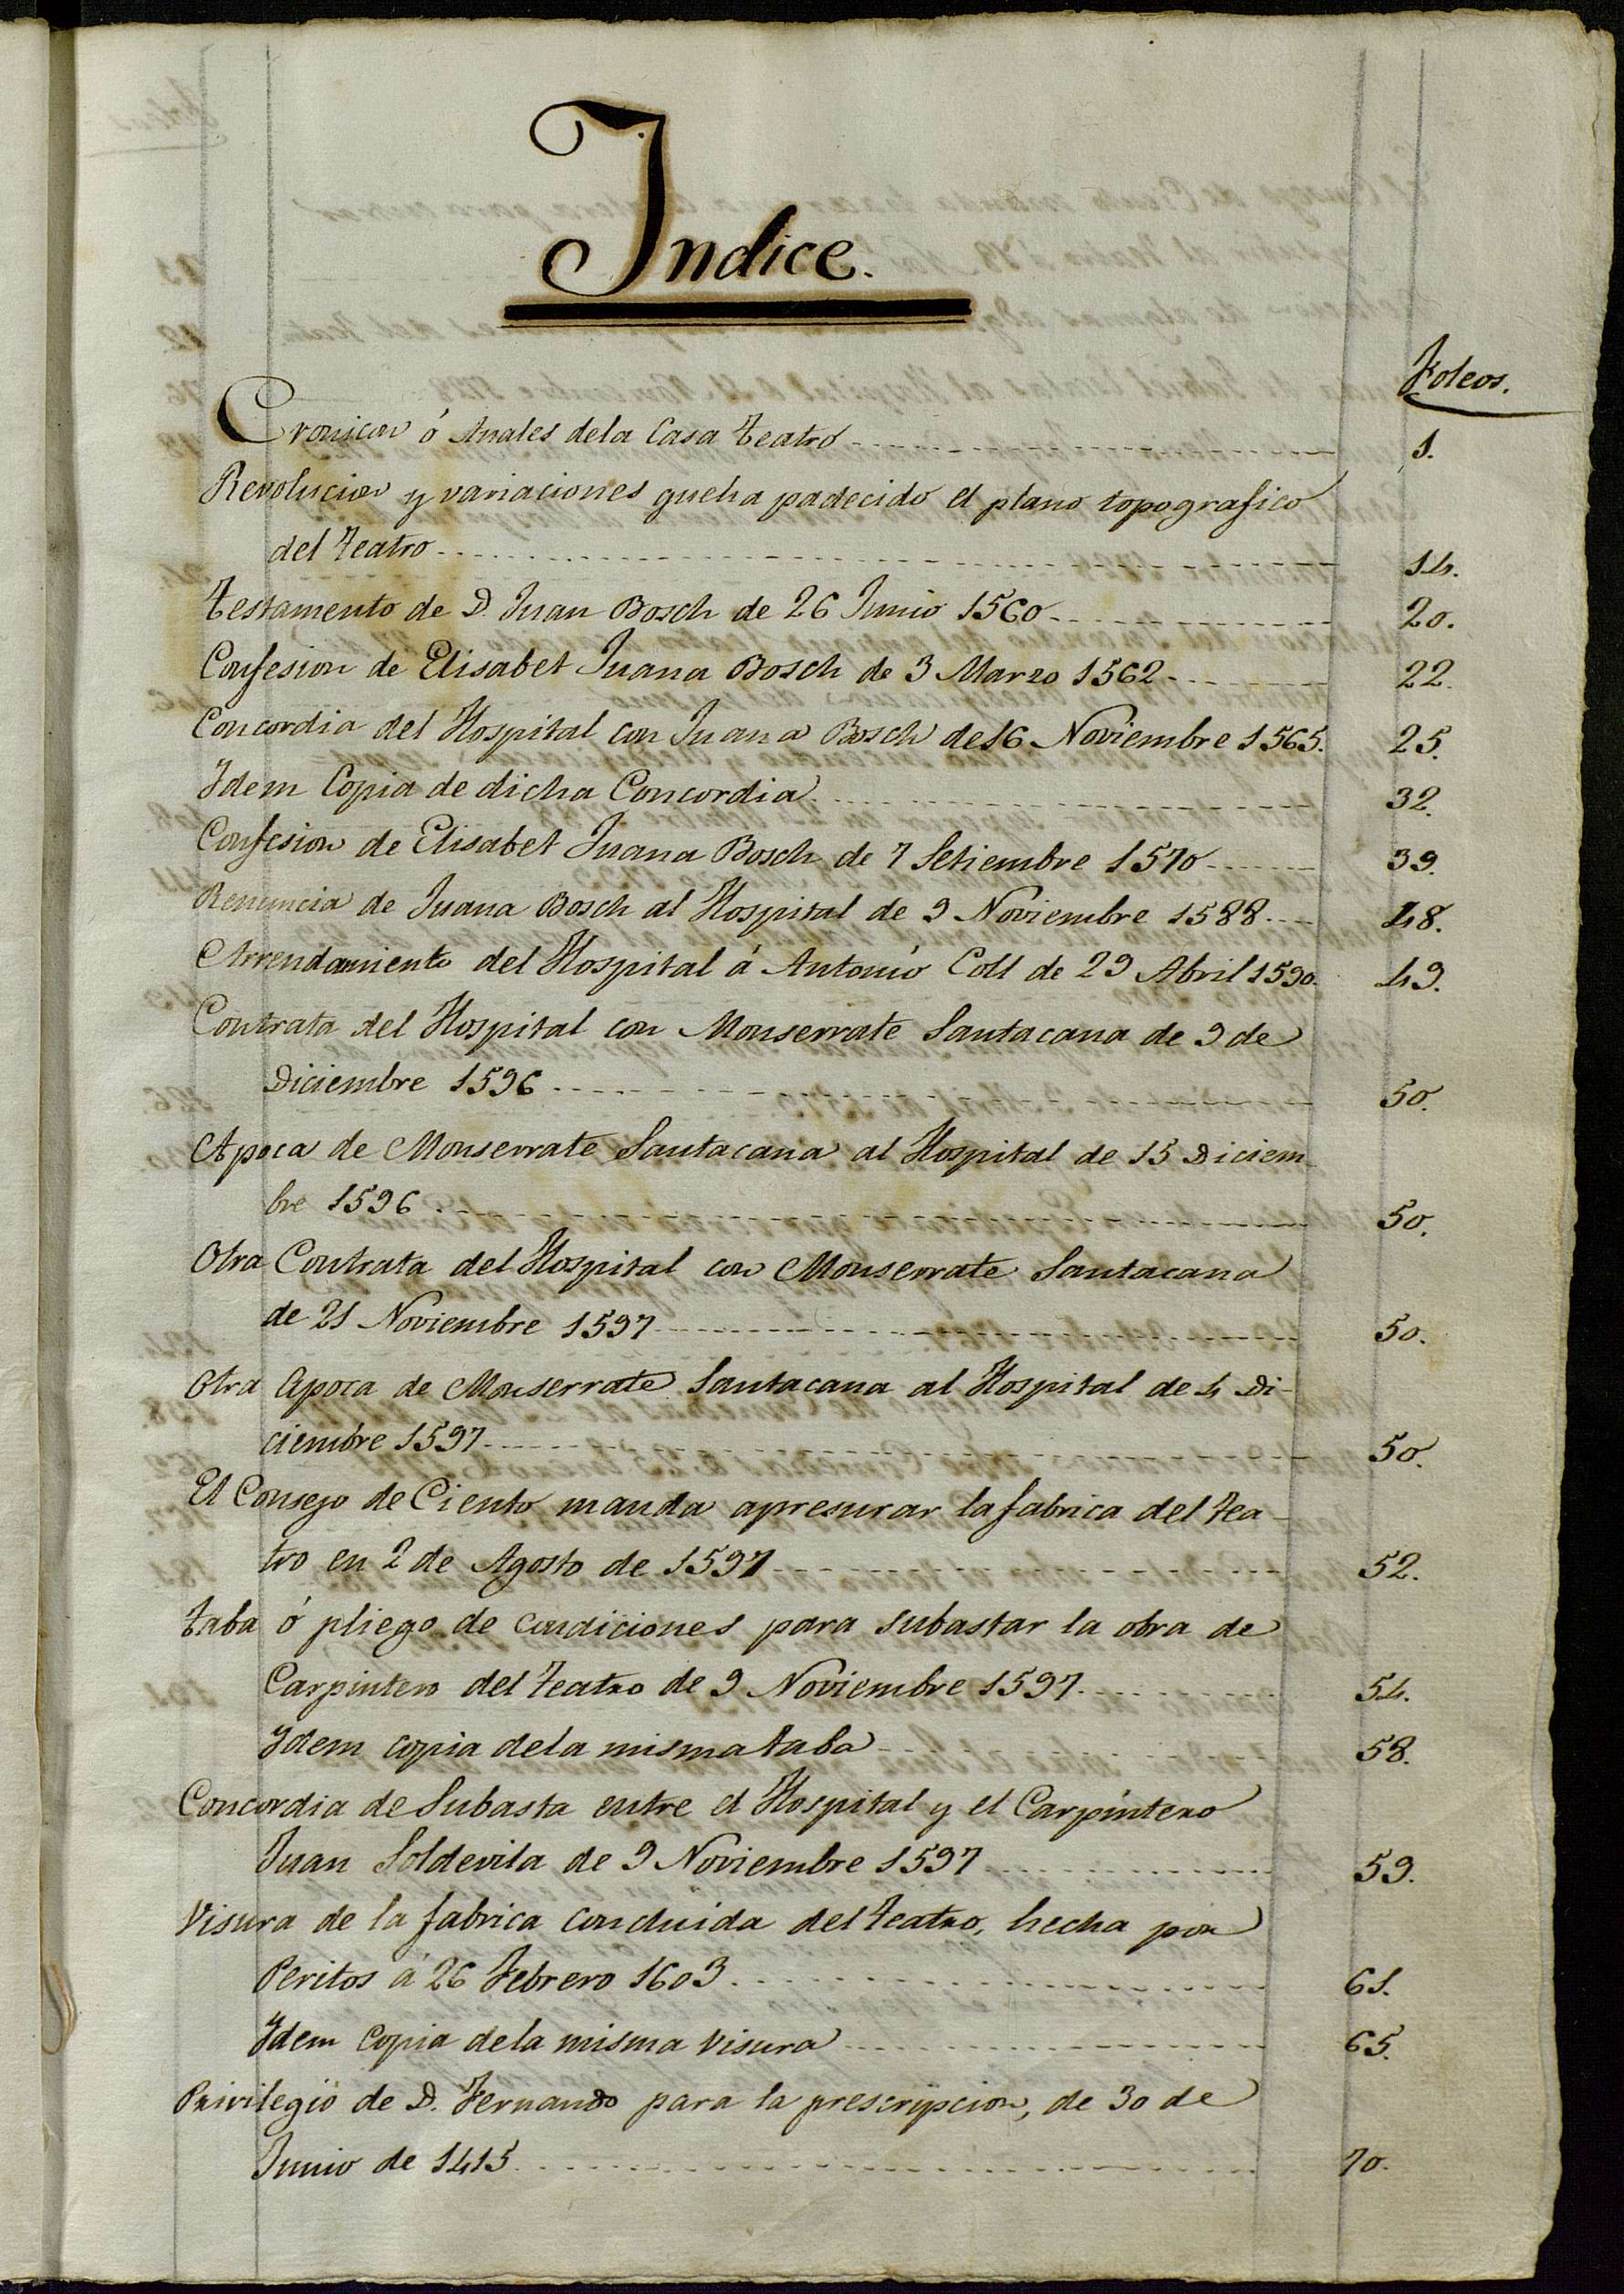 Indice.
Foleos.
Cronica ó Anales dela Casa Teatro 1.
Revolucion y variaciones queha padecido el plano topografico
del Teatro 14.
Testamento de D. Juan Bosch de 26 Junio 1560 20.
Confesion de Elisabet Juana Bosch de 3 Marzo 1562 22.
Concordia del Hospital con Juana Bosch de 16 Noviembre 1565. 25.
Idem Copia de dicha Concordia 32.
Confesion de Elisabet Juana Bosch de 7 Setiembre 1570 39.
Renuncia de Juana Bosch al Hospital de 9 Noviembre 1588 48.
Arrendamiento del Hospital á Antonio Coll de 29 Abril 1590. 49.
Contrata del Hospital con Monserrate Santacana de 9 de
Diciembre 1596 50.
Apoca de Monserrate Santacana al Hospital de 15 Diciem-
bre 1596 50.
Otra Contrata del Hospital con Monserrate Santacana
de 21 Noviembre 1597 50.
Otra Apoca de Monserrate Santacana al Hospital de 4 Di-
ciembre 1597 50.
El Consejo de Ciento manda apresurar la fabrica del Tea-
tro en 2 de Agosto de 1597 52.
Taba ó pliego de condiciones para subastar la obra de
Carpintero del Teatro de 9 Noviembre 1597 54.
Idem copia dela misma taba 58.
Concordia de Subasta entre el Hospital y el Carpintero
Juan Soldevila de 9 Noviembre 1597 59.
Visura de la fabrica concluida del Teatro, hecha por
Peritos á 26 Febrero 1603 61.
Idem Copia dela misma Visura 65.
Privilegio de D. Fernando para la prescripcion, de 30 de
Junio de 1415 70.